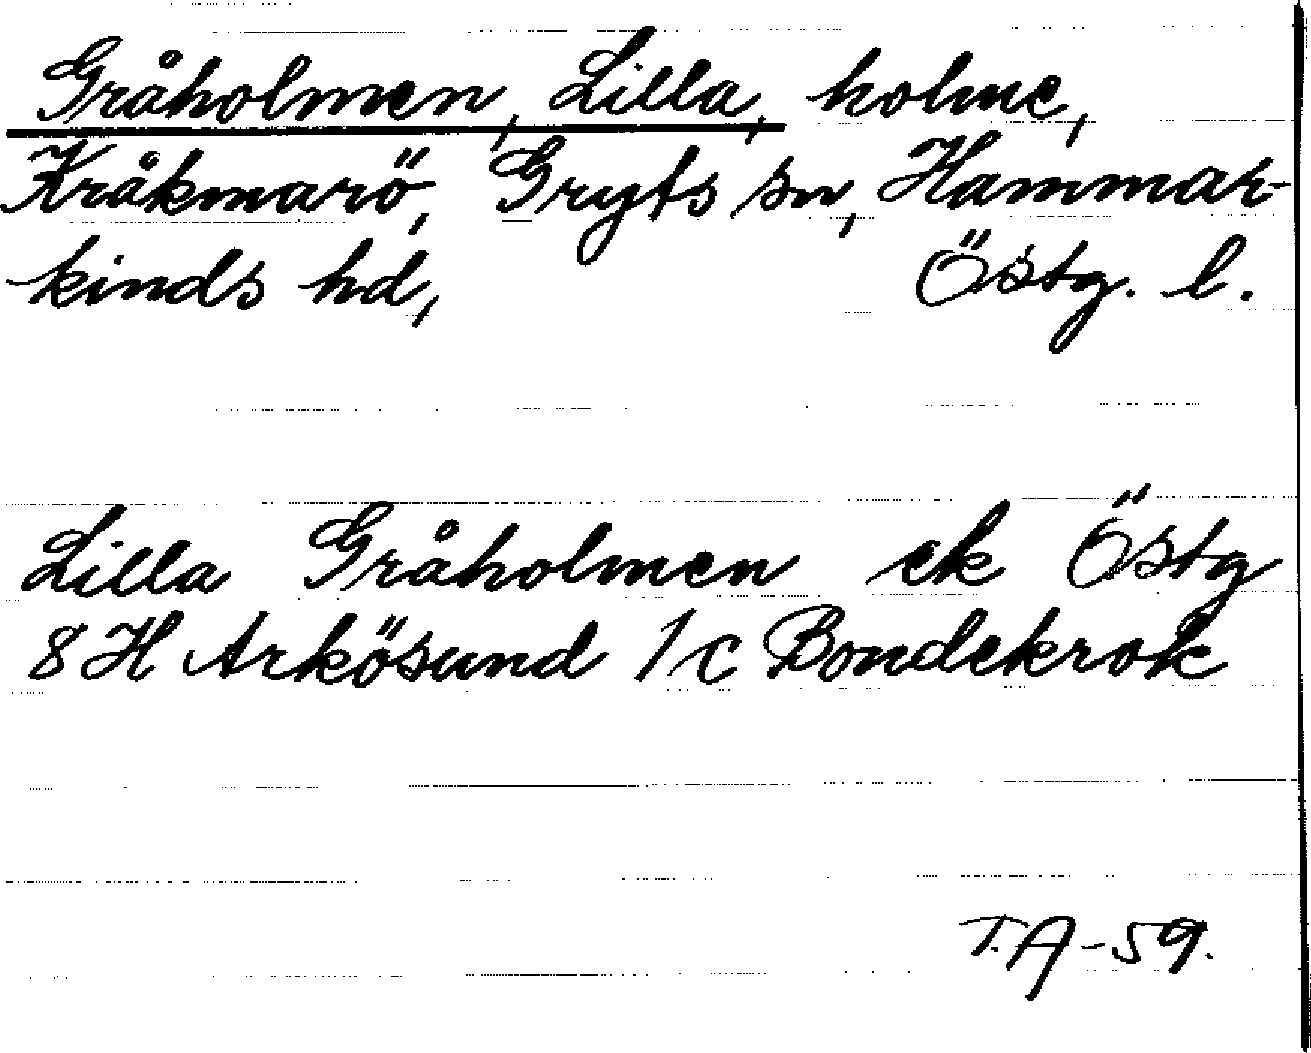 Gråholmen, Lilla, holme,
Kråkmarö, Gryts sn, Hammar-
kinds hd, Östg. l.
Lilla Gråholmen ek Östg
8 H Arkösund 1c Bondekrok
T.A-59.